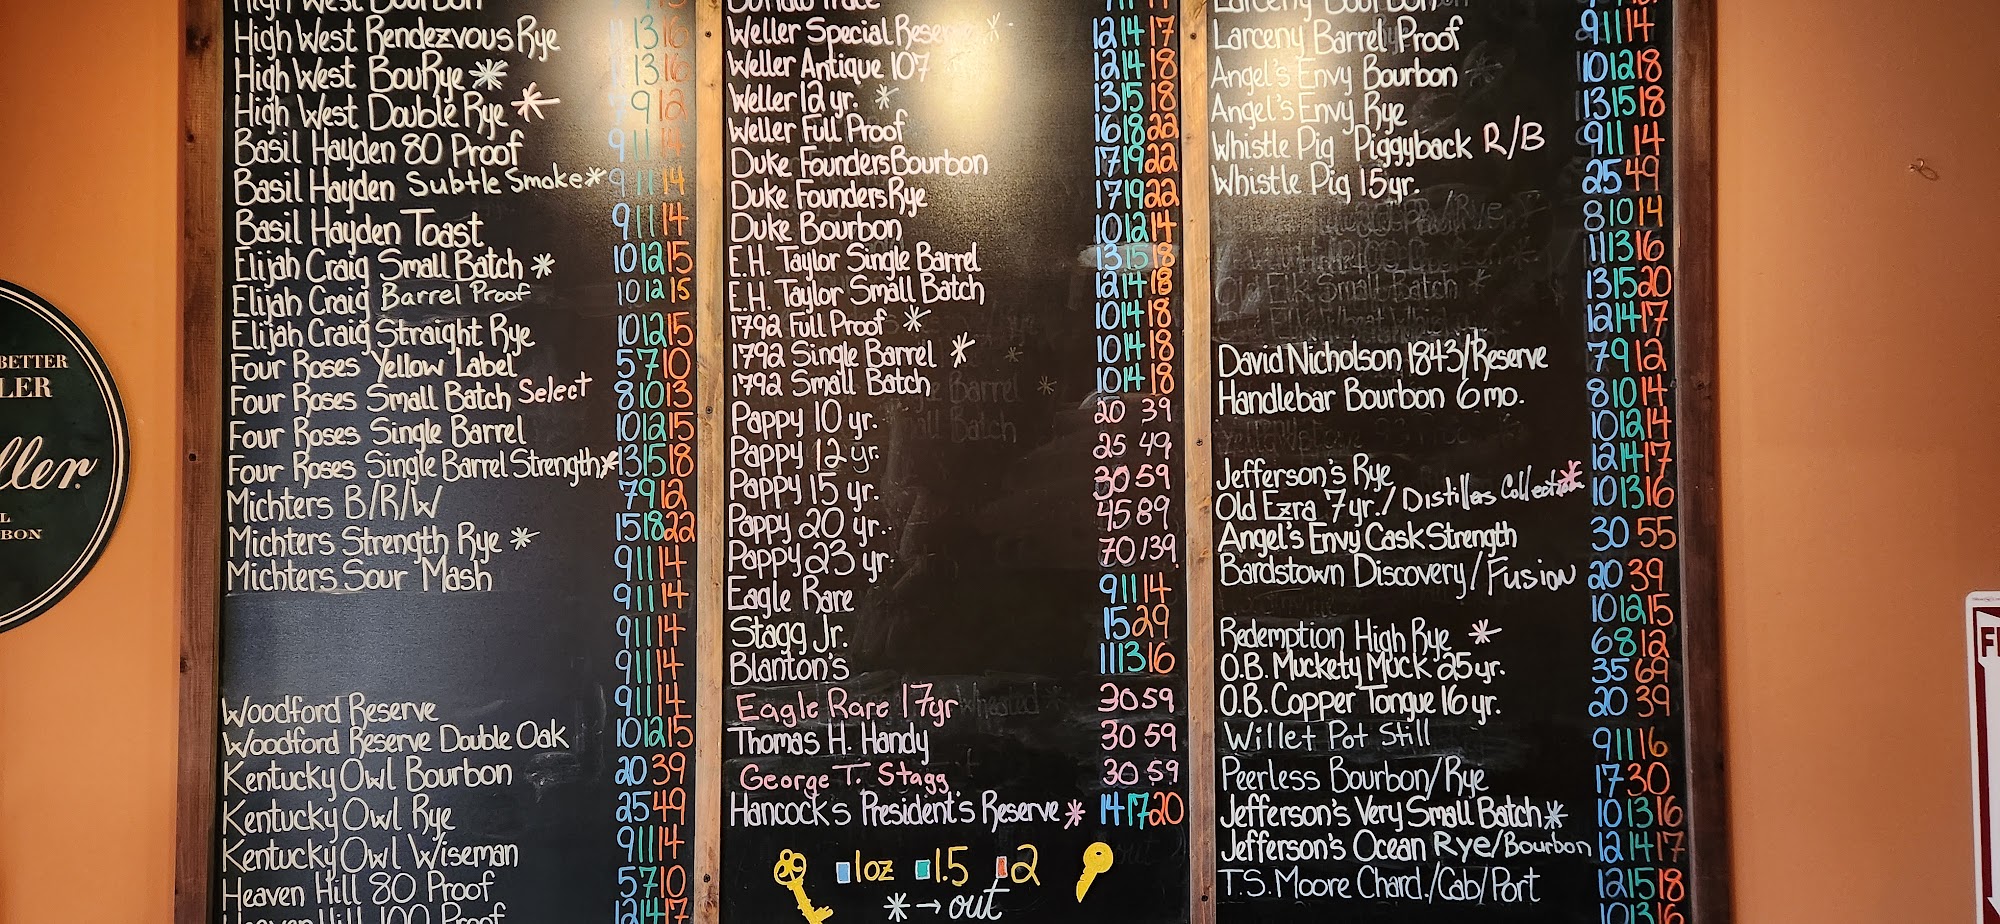 BETTER
LER
ller.
L
BON
High West Bourbon
High West Rendezvous Rye 13 16
High West BouRye * 13 16
High West Double Rye * 9 12
Basil Hayden 80 Proof 9 11 14
Basil Hayden Subtle Smoke * 9 11 14
Basil Hayden Toast 9 11 14
Elijah Craig Small Batch * 10 12 15
Elijah Craig Barrel Proof 10 12 15
Elijah Craig Straight Rye 10 12 15
Four Roses Yellow Label 5 7 10
Four Roses Small Batch Select 8 10 13
Four Roses Single Barrel 10 12 15
Four Roses Single Barrel Strength * 13 15 18
Michters B/R/W 7 9 12
Michters Strength Rye * 15 18 22
Michters Sour Mash 9 11 14
9 11 14
9 11 14
9 11 14
Woodford Reserve 9 11 14
Woodford Reserve Double Oak 10 12 15
Kentucky Owl Bourbon 20 39
Kentucky Owl Rye 25 49
Kentucky Owl Wiseman 9 11 14
Heaven Hill 80 Proof 5 7 10
Heaven Hill 100 Proof 12 14 17
Buffalo Trace
Weller Special Reserve * 12 14 17
Weller Antique 107 12 14 18
Weller 12 yr. * 13 15 18
Weller Full Proof 16 18 22
Duke Founders Bourbon 17 19 22
Duke Founders Rye 17 19 22
Duke Bourbon 10 12 14
E.H. Taylor Single Barrel 13 15 18
E.H. Taylor Small Batch 12 14 18
1792 Full Proof * 10 14 18
1792 Single Barrel * 10 14 18
1792 Small Batch 10 14 18
Pappy 10 yr. 20 39
Pappy 12 yr. 25 49
Pappy 15 yr. 30 59
Pappy 20 yr. 45 89
Pappy 23 yr. 70 139
Eagle Rare 9 11 14
Stagg Jr. 15 29
Blanton's 11 13 16
Eagle Rare 17yr 30 59
Thomas H. Handy 30 59
George T. Stagg 30 59
Hancock's President's Reserve * 14 17 20
1oz 1.5 2
* → out
Larceny Bourbon
Larceny Barrel Proof 9 11 14
Angel's Envy Bourbon 10 12 18
Angel's Envy Rye 13 15 18
Whistle Pig Piggyback R/B 9 11 14
Whistle Pig 15yr. 25 49
8 10 14
11 13 16
Old Elk Small Batch * 13 15 20
12 14 17
David Nicholson 1843/Reserve 7 9 12
Handlebar Bourbon 6mo. 8 10 14
10 12 14
Jefferson's Rye 12 14 17
Old Ezra 7yr./Distillers Collection * 10 13 16
Angel's Envy Cask Strength 30 55
Bardstown Discovery/Fusion 20 39
10 12 15
Redemption High Rye * 6 8 12
O.B. Muckety Muck 25yr. 35 69
O.B. Copper Tongue 16yr. 20 39
Willet Pot Still 9 11 16
Peerless Bourbon/Rye 17 30
Jefferson's Very Small Batch * 10 13 16
Jefferson's Ocean Rye/Bourbon 12 14 17
T.S. Moore Chard./Cab/Port 12 15 18
10 13 16